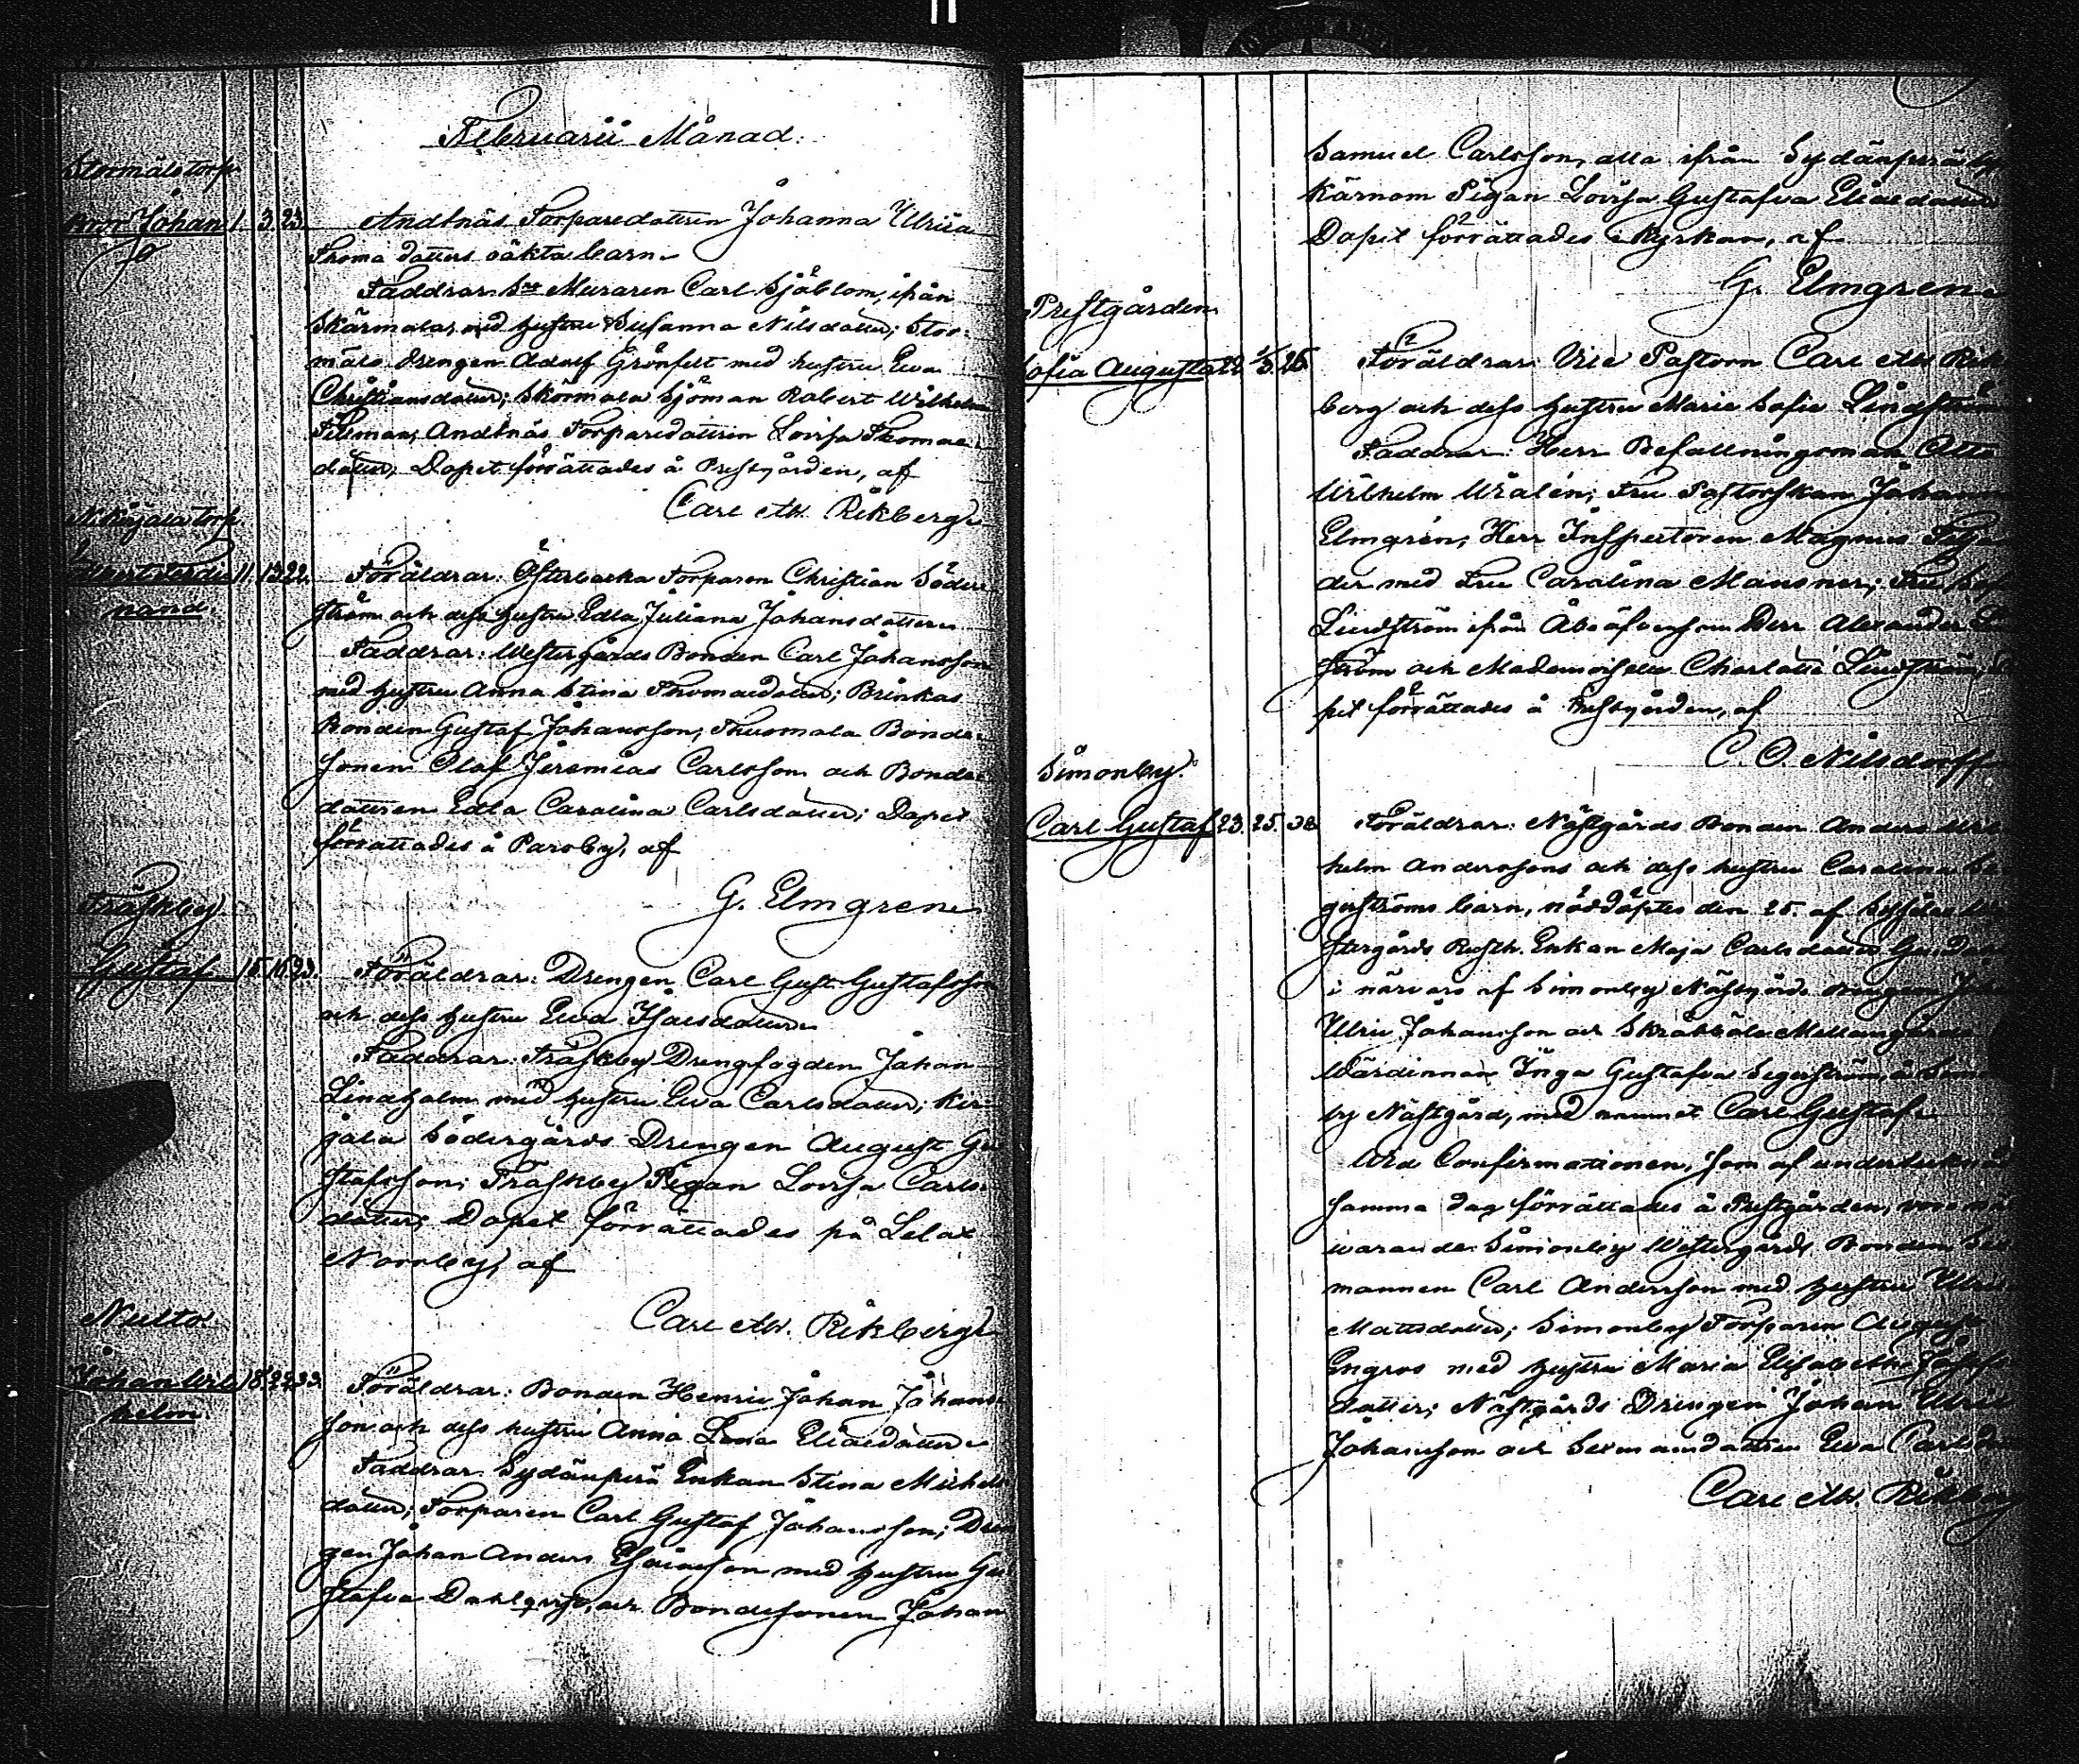 Februarii Månad.
Stormälstorp
Johan 1 3 23. Andtnäs Torparedottren Johanna Ulrica
Thomadotters oäkta barn.
Faddrar: Muraren Carl Sjöblom, ifrån
Skärmala, med hustru Susanna Nilsdotter; Stor-
mäls Drengen Adolf Grönfelt med hustru Eva
Christiansdotter; Skärmala Sjöman Robert Wilhelm
Andtnäs Torparedottren Lovisa Thomae
dotter, Dopet förrättades å Prestgården, af
Carl Ath. Rikberg
torp
Ferdi 11. 13 22. Föräldrar: Österbacka Torparen Christian Söder
nand. ström och dess hustru Edla Juliana Johansdotter.
Faddrar: Westergårds Bonden Carl Johansson
med hustru Anna Stina Thomaedotter; Brinkas
Bonden Gustaf Johansson, Bonde-
sonen Olof Jeremias Carlsson och Bonde
dottren Edla Carolina Carlsdotter; Dopet
förrättades å Parsby, af
G. Elmgren
Träskby
Gustaf 15. 16 23. Föräldrar: Drengen Carl Gust. Gustafsson
och dess hustru Eva Isacsdotter.
Faddrar: Träskby Drengfogden Johan
Lindholm med hustru Eva Carlsdotter; Kir-
jala Södergårds Drengen August Gu
stafsson; Träskby Pigan Lovisa Carls-
dotter; Dopet förrättades på Lelax
Norrby, af
Carl Ath. Rikberg
Nulto
Johan Wil 18. 22 33. Föräldrar: Bonden Henric Johan Johans-
helm son och dess hustru Anna Lena Eliaedotter.
Faddrar: Sydänperä Enkan Stina Michels
dotter; Torparen Carl Gustaf Johansson; Dren
gen Johan Anders Esaiasson med hustru Gu
stafva Dahlqvist, och Bondesonen Johan
Samuel Carlsson, alla ifrån Sydänperä
Kärnom Pigan Lovisa Gustafva Eliaedotter
Dopet förrättades i Kyrkan, af
G. Elmgren
Prestgården
Sofia Augusta 22. 1/3. 26 Föräldrar: Vice Pastorn Carl Ath. Rik
berg och dess hustru Maria Sofia Lindström
Faddrar: Herr Befallningsman Otto
Wilhelm Wialén; Fru Pastorskan Johanna
Elmgren; Herr Inspectoren Magnus
der med Fru Carolina Mansner; Fru
Lindström ifrån Åbo äfvensom Herr Alexander Lind
ström och Mademoiselle Charlotta Lindström; Do
pet förrättades å Prestgården, af
C. O. Nilsdorff
Simonby.
Carl Gustaf 23. 25. 38 Föräldrar: Nästgårds Bonden Anders Wil
helm Anderssons och dess hustru Carolina Se
gerströms barn, nöddöptes den 25. af
stergårds Rusth. Enkan Maja Carlsdotter
i närvaro af Simonby Nästgårds Drengen Johan
Ulric Johansson och Skräbböle Mellangårds
Wärdinnan Inga Gustafva Segerström, å Simon
by Nästgård, med namnet Carl Gustaf.
Wid Confirmationen, som af undertecknad
samma dag förrättades å Prestgården, voro när
varande: Simonby Westergårds Bonden Sex
mannen Carl Andersson med hustru Ulrica
Mattsdotter; Simonby Torparen August
Engros med hustru Maria Elisabeth
dotter; Nästgårds Drengen Johan Ulric
Johansson och Sexmansdottren Eva Carlsdotter
Carl Ath. Rikberg